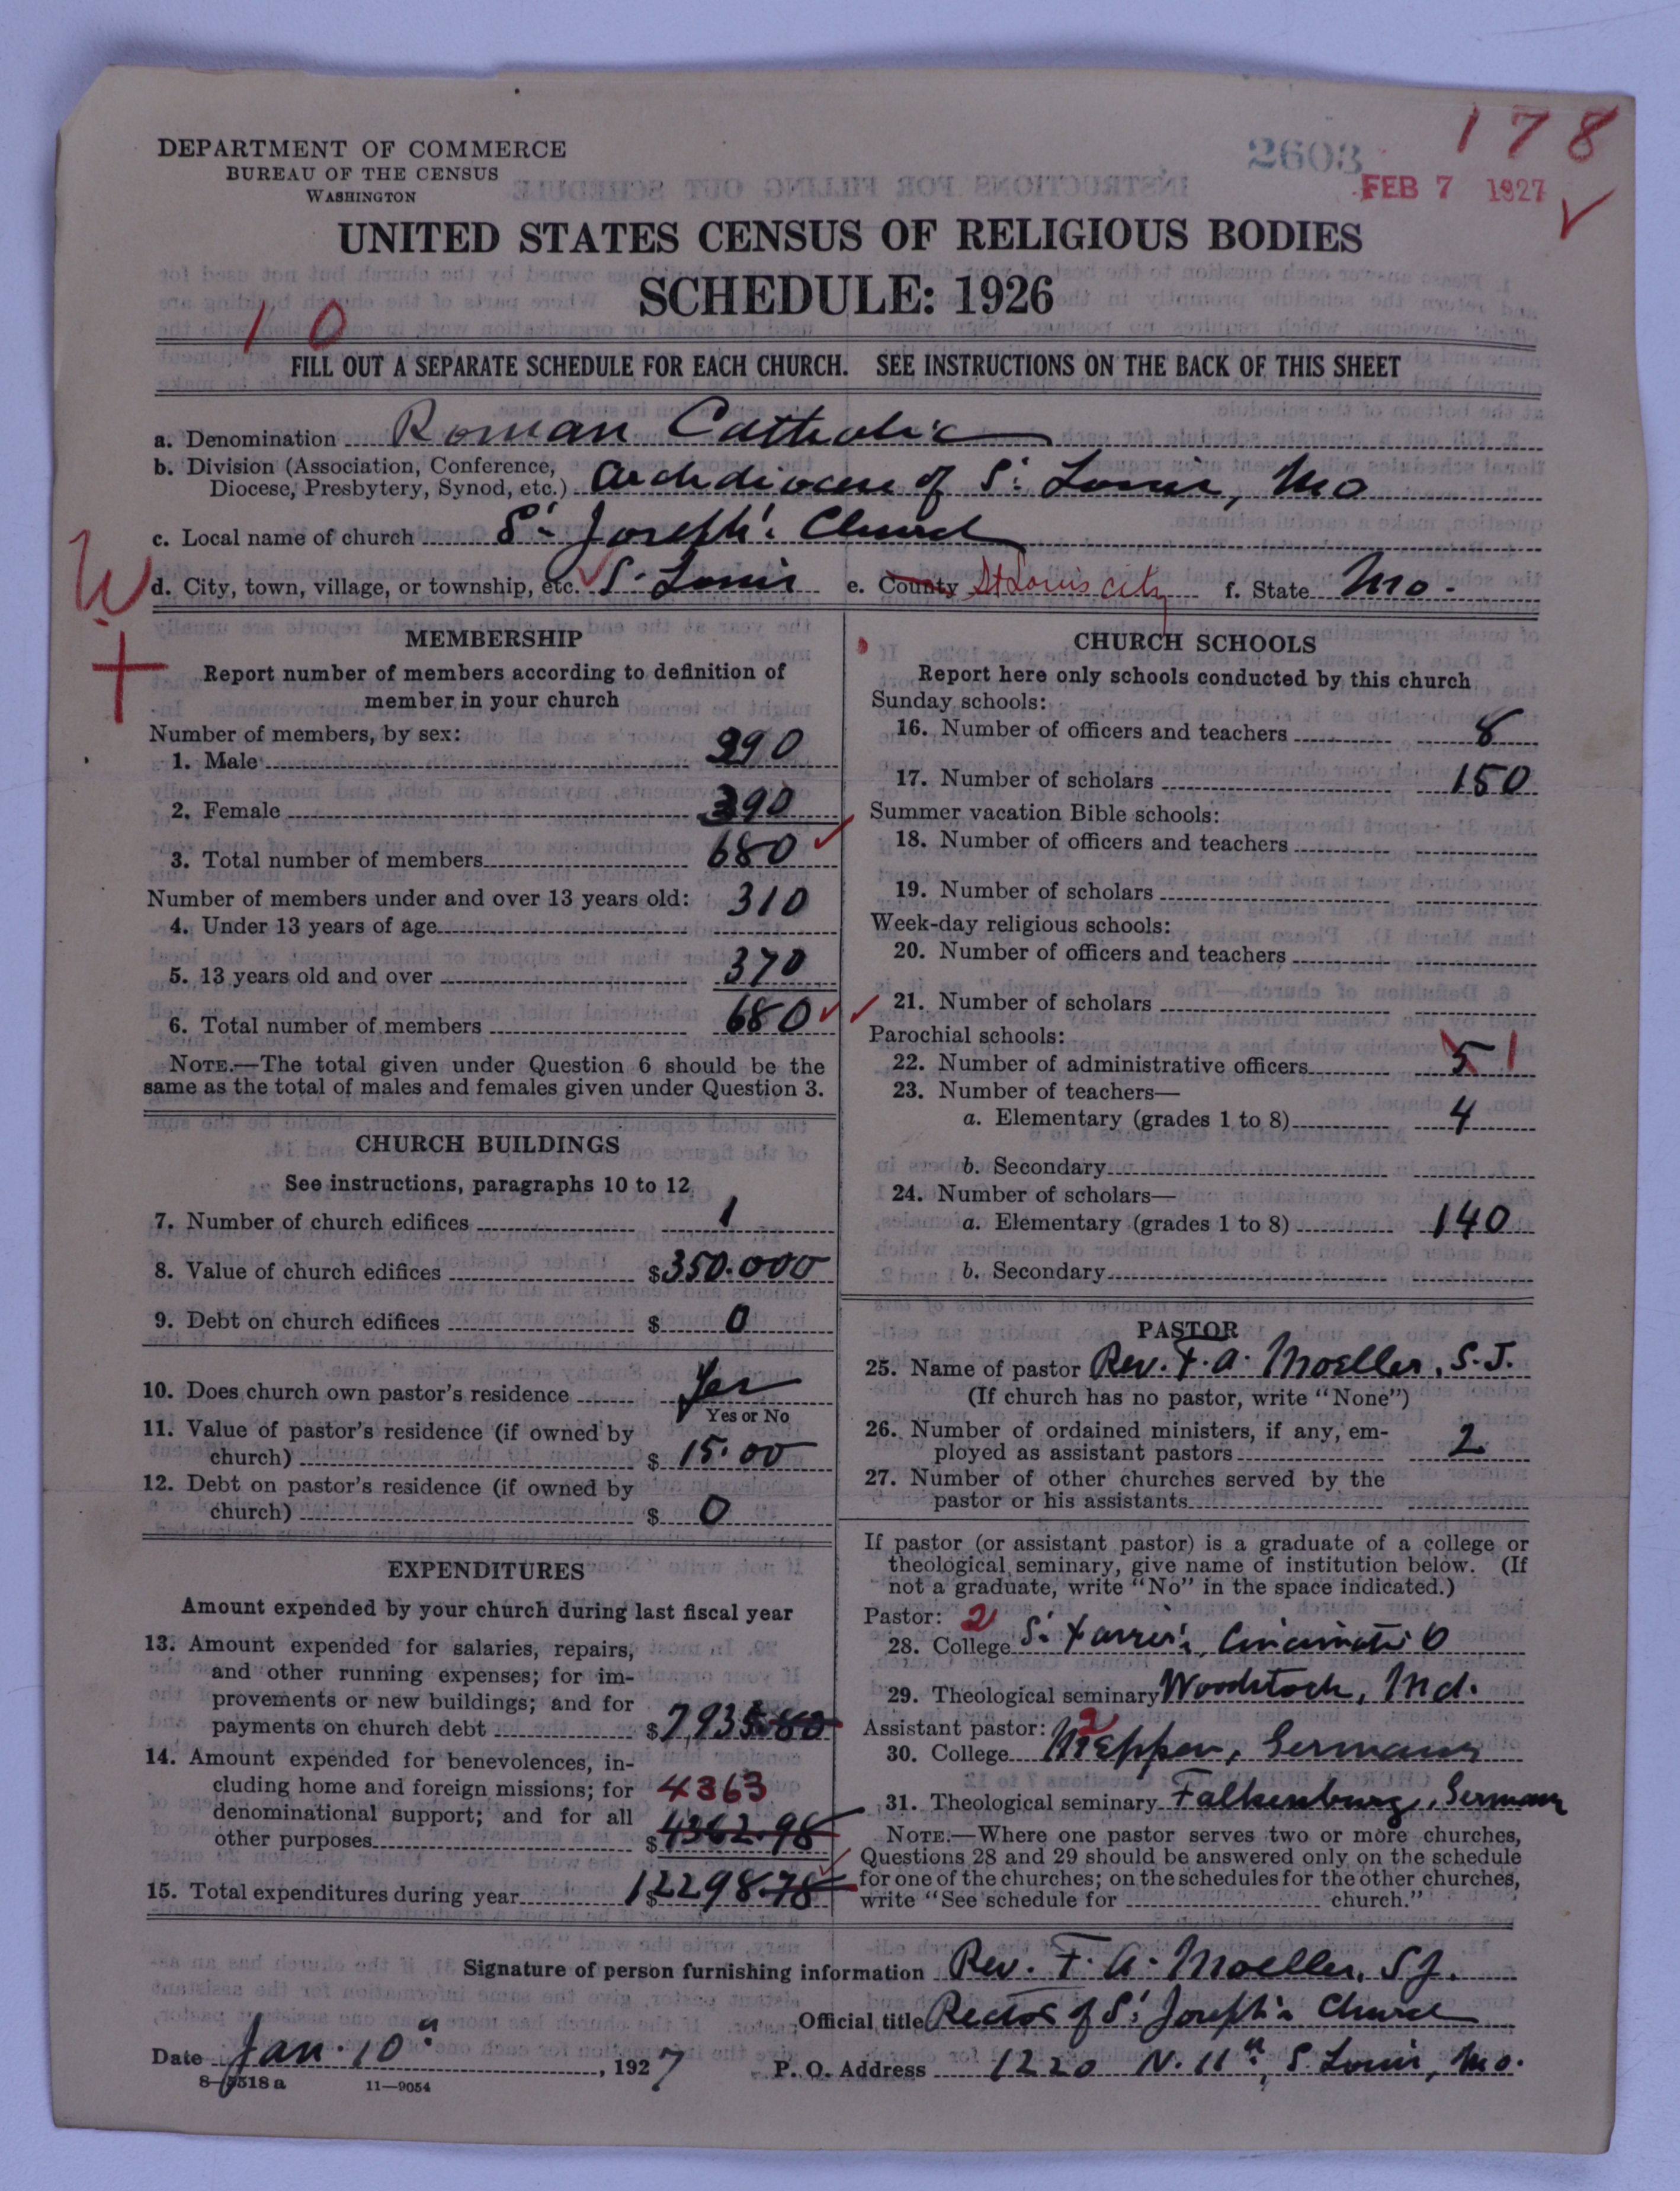 DEPARTMENT OF COMMERCE
BUREAU OF THE CENSUS
WASHINGTON
2603
178
FEB 7 1927
UNITED STATES CENSUS OF RELIGIOUS BODIES
SCHEDULE: 1926
10
FILL OUT A SEPARATE SCHEDULE FOR EACH CHURCH. SEE INSTRUCTIONS ON THE BACK OF THIS SHEET
a. Denomination Roman Catholic
b. Division (Association, Conference,
Diocese, Presbytery, Synod, etc.) Archdiocese of St Louis, Mo
c. Local name of church St Joseph's Church
W
d. City, town, village, or township, etc. St. Louis e. County St Louis City f. State Mo.
MEMBERSHIP
Report number of members according to definition of
member in your church
Number of members, by sex:
1. Male 290
2. Female 390
3. Total number of members 680
Number of members under and over 13 years old:
4. Under 13 years of age 310
5. 13 years old and over 370
6. Total number of members 680
NOTE.—The total given under Question 6 should be the
same as the total of males and females given under Question 3.
CHURCH BUILDINGS
See instructions, paragraphs 10 to 12
7. Number of church edifices 1
8. Value of church edifices $350.000
9. Debt on church edifices $ 0
10. Does church own pastor's residence Yes
Yes or No
11. Value of pastor's residence (if owned by
church) $ 15.00
12. Debt on pastor's residence (if owned by
church) $ 0
EXPENDITURES
Amount expended by your church during last fiscal year
13. Amount expended for salaries, repairs,
and other running expenses; for im-
provements or new buildings; and for
payments on church debt $7935.80
14. Amount expended for benevolences, in-
cluding home and foreign missions; for 4363
denominational support; and for all
other purposes $4362.98
15. Total expenditures during year $12298.78
CHURCH SCHOOLS
Report here only schools conducted by this church
Sunday schools:
16. Number of officers and teachers 8
17. Number of scholars 150
Summer vacation Bible schools:
18. Number of officers and teachers
19. Number of scholars
Week-day religious schools:
20. Number of officers and teachers
21. Number of scholars
Parochial schools:
22. Number of administrative officers 5 1
23. Number of teachers—
a. Elementary (grades 1 to 8) 4
b. Secondary
24. Number of scholars—
a. Elementary (grades 1 to 8) 140
b. Secondary
PASTOR
25. Name of pastor Rev. F. A. Moeller, S.J.
(If church has no pastor, write "None")
26. Number of ordained ministers, if any, em-
ployed as assistant pastors 2
27. Number of other churches served by the
pastor or his assistants
If pastor (or assistant pastor) is a graduate of a college or
theological seminary, give name of institution below. (If
not a graduate, write "No" in the space indicated.)
Pastor: 2
28. College St Xavier's, Cincinnati O
29. Theological seminary Woodstock, Md.
Assistant pastor: 2
30. College Meppen, Germany
31. Theological seminary Falkenburg, Germany
NOTE.—Where one pastor serves two or more churches,
Questions 28 and 29 should be answered only on the schedule
for one of the churches; on the schedules for the other churches,
write "See schedule for church."
Signature of person furnishing information Rev. F. A. Moeller, SJ.
Official title Rector of St Joseph's Church
Date Jan. 10", 1927 P. O. Address 1220 N. 11th, St. Louis, Mo.
8—5518 a 11—9054